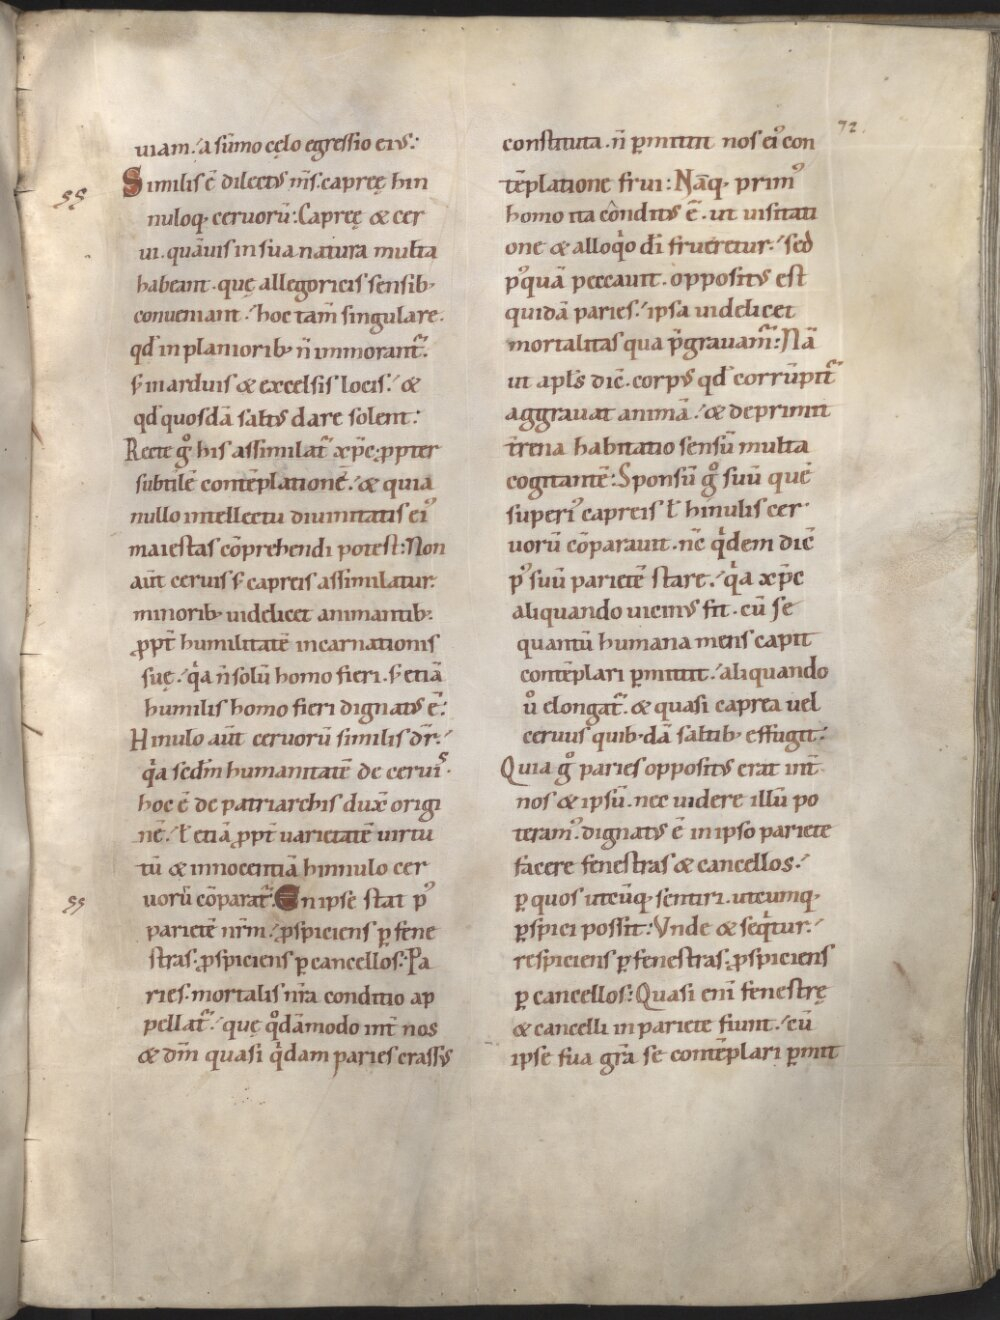 72.
uiam.' a sūmo cęlo egressio eiꝰ:
Similis ē dilectꝰ m̄s. capreę hin
nuloq; ceruorū: Capreę & cer
ui. quāuis in sua natura multa
habeant. quę allegoricis sensib;
conueniant.' hoc tam̄ singulare.
qđ in planiorib; n̄ immorant᷑.
ſ; in arduis & excelsis locis.' &
qđ quosdā saltꝰ dare solent:
Recte gͦ his assimilat᷑ xp̄c. ꝓpter
subtilē contēplationē.' & quia
nullo intellectu diuinitatis eiꝰ
maiestas cōprehendi potest: Non
aūt ceruis ſ; capreis assimilatur.
minorib; uidelicet animantib;.
ꝓpt̄ humilitatē incarnationis
suę.' qͥa n̄ solū homo fieri. ſ; etiā
humilis homo fieri dignatꝰ ē:
Hinulo aūt ceruorū similis dr̄.'
qͥa scdm̄ humanitatē de ceruis.
hoc ē de patriarchis dux̄ origi
nē.' ł etiā ꝓpt̄ uarietatē uirtu
tū & innocentiā hinnulo cer
uorū cōparat᷑. En ipse stat pꝰ
parietē nr̄m.' ꝓspiciens ꝑ fene
stras. ꝓspiciens ꝑ cancellos: Pa
ries. mortalis nr̄a conditio ap
pellat᷑.' quę qͦdāmodo int̄ nos
& dm̄ quasi qͥdam paries crassꝰ
constituta. n̄ ꝑmittit nos eiꝰ con
tēplatione frui: Nāq; primꝰ
homo ita conditꝰ ē. ut uisitati
one & alloqͦo dī frueretur.' sed
pꝰquā peccauit. oppositꝰ est
quidā paries.' ipsa uidelicet
mortalitas qua p̄grauam᷑: Nā
ut apłs dic̄. corpꝰ qđ corrūpit᷑
aggrauat animā.' & deprimit
t̄rena habitatio sensū multa
cogitantē: Sponsū gͦ suū quē
superiꝰ capreis ł hinulis cer
uorū cōparauit. nc̄ qͥdem dic̄
pꝰ suū parietē stare.' qͥa xp̄c
aliquando uicinꝰ fit. cū se
quantū humana mens capit
contēplari ꝑmittit.' aliquando
uͦ elongat᷑. & quasi caprea uel
ceruus quib;dā saltib; effugit:
Quia gͦ paries oppositꝰ erat int̄
nos & ipsū. nec uidere illū po
teramꝰ. dignatꝰ ē in ipso pariete
facere fenestras & cancellos.'
ꝑ quos utcūq; sentiri. utcumq;
ꝑspici possit: Vnde & seqͥtur.'
respiciens ꝑ fenestras. ꝓspiciens
ꝑ cancellos: Quasi enī fenestrę
& cancelli in pariete fiunt.' cū
ipse sua gr̄a se contēplari ꝑmit